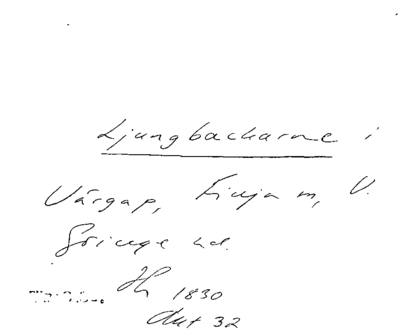 Ljungbackarne i
Vårgap, Finja m, V.
Göinge hd.
Hh 1830
Akt 32